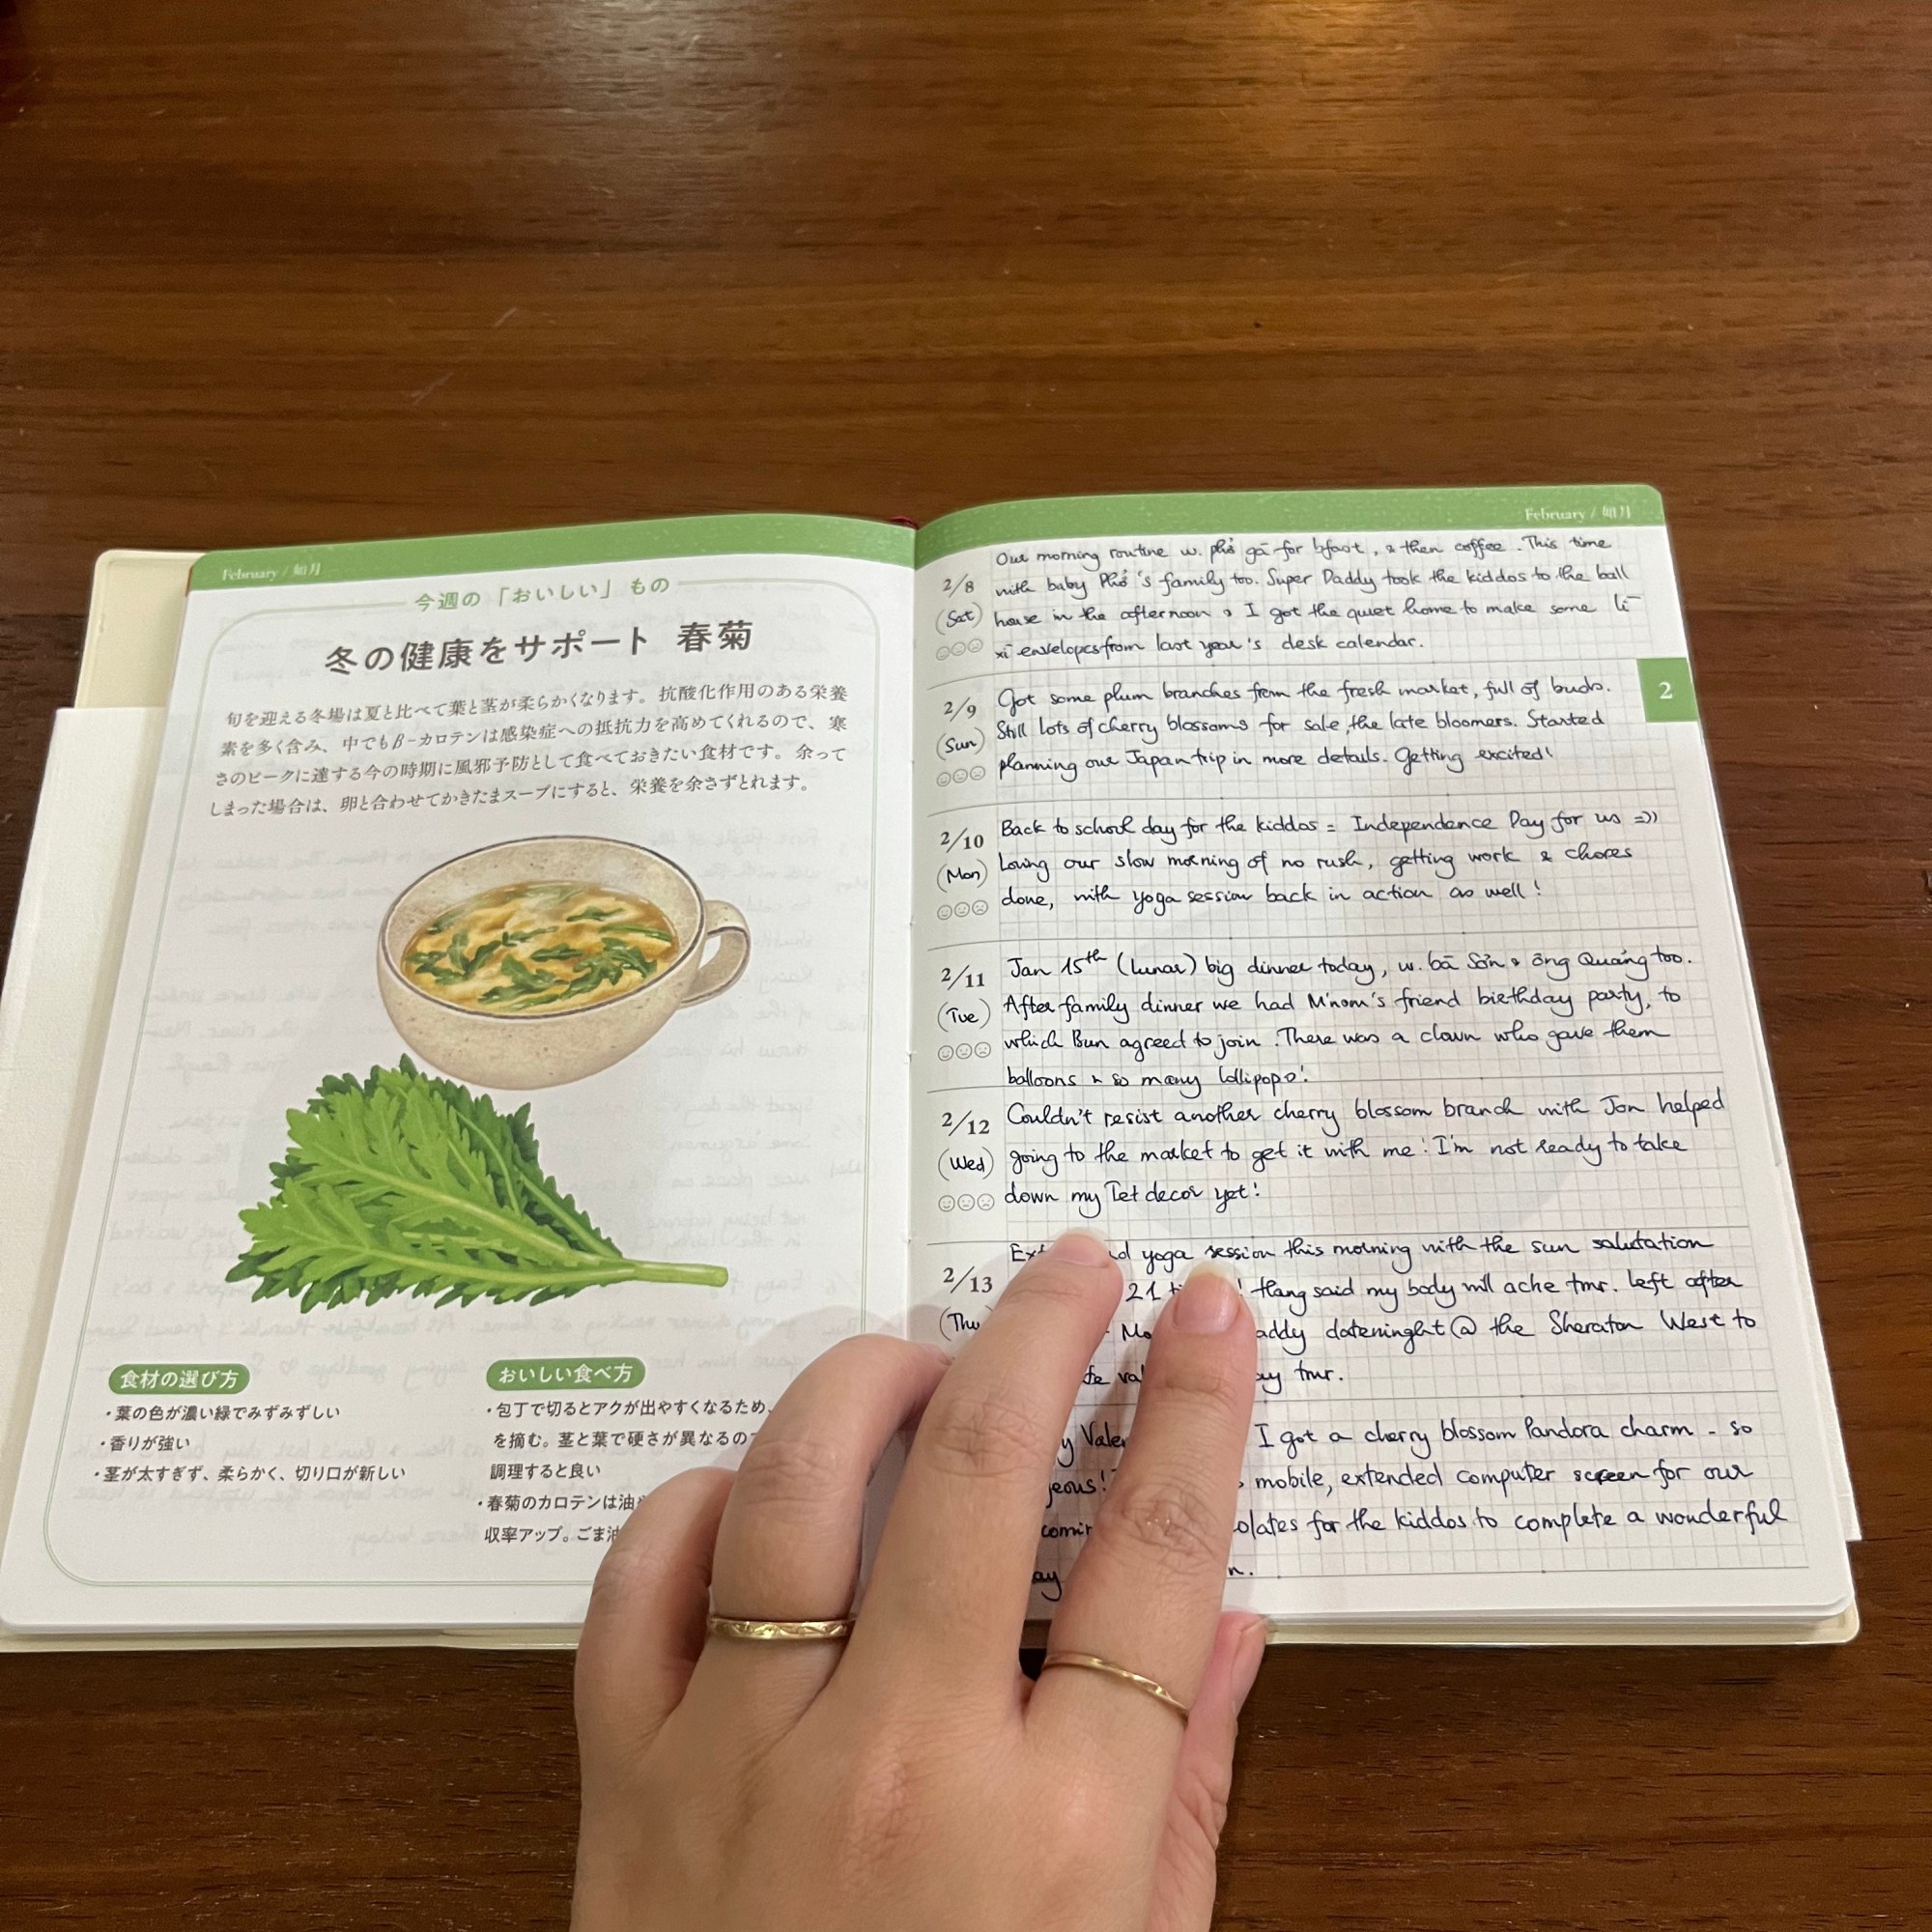 February / 如月
今週の「おいしい」もの
冬の健康をサポート 春菊
旬を迎える冬場は夏と比べて葉と茎が柔らかくなります。抗酸化作用のある栄養
素を多く含み、中でもβ-カロテンは感染症への抵抗力を高めてくれるので、寒
さのピークに達する今の時期に風邪予防として食べておきたい食材です。余って
しまった場合は、卵と合わせてかきたまスープにすると、栄養を余さずとれます。
食材の選び方
・葉の色が濃い緑でみずみずしい
・香りが強い
・茎が太すぎず、柔らかく、切り口が新しい
おいしい食べ方
・包丁で切るとアクが出やすくなるため、
を摘む。茎と葉で硬さが異なるので
調理すると良い
・春菊のカロテンは油
収率アップ。ごま油
February / 如月
2
2/8
(Sat)
Our morning routine w. phở gà for bfast, & then coffee. This time
with baby Phở's family too. Super Daddy took the kiddos to the ball
house in the afternoon & I got the quiet home to make some lì
xì envelopes from last year's desk calendar.
2/9
(Sun)
Got some plum branches from the fresh market, full of buds.
Still lots of cherry blossoms for sale, the late bloomers. Started
planning our Japan trip in more details. Getting excited!
2/10
(Mon)
Back to school day for the kiddos = Independence Day for us =))
Loving our slow morning of no rush, getting work & chores
done, with yoga session back in action as well!
2/11
(Tue)
Jan 15th (lunar) big dinner today, w. bà Sơn & ông Quảng too.
After family dinner we had M'nom's friend birthday party, to
which Bun agreed to join. There was a clown who gave them
balloons & so many lollipops!
2/12
(Wed)
Couldn't resist another cherry blossom branch with Jon helped
going to the market to get it with me! I'm not ready to take
down my Tet decor yet!
2/13
(Thu
yoga session this morning with the sun salutation
21 Hang said my body will ache tmr. Left after
dateninght @ the Sheraton West to
tmr.
I got a cherry blossom Pandora charm - so
mobile, extended computer screen for our
for the kiddos to complete a wonderful